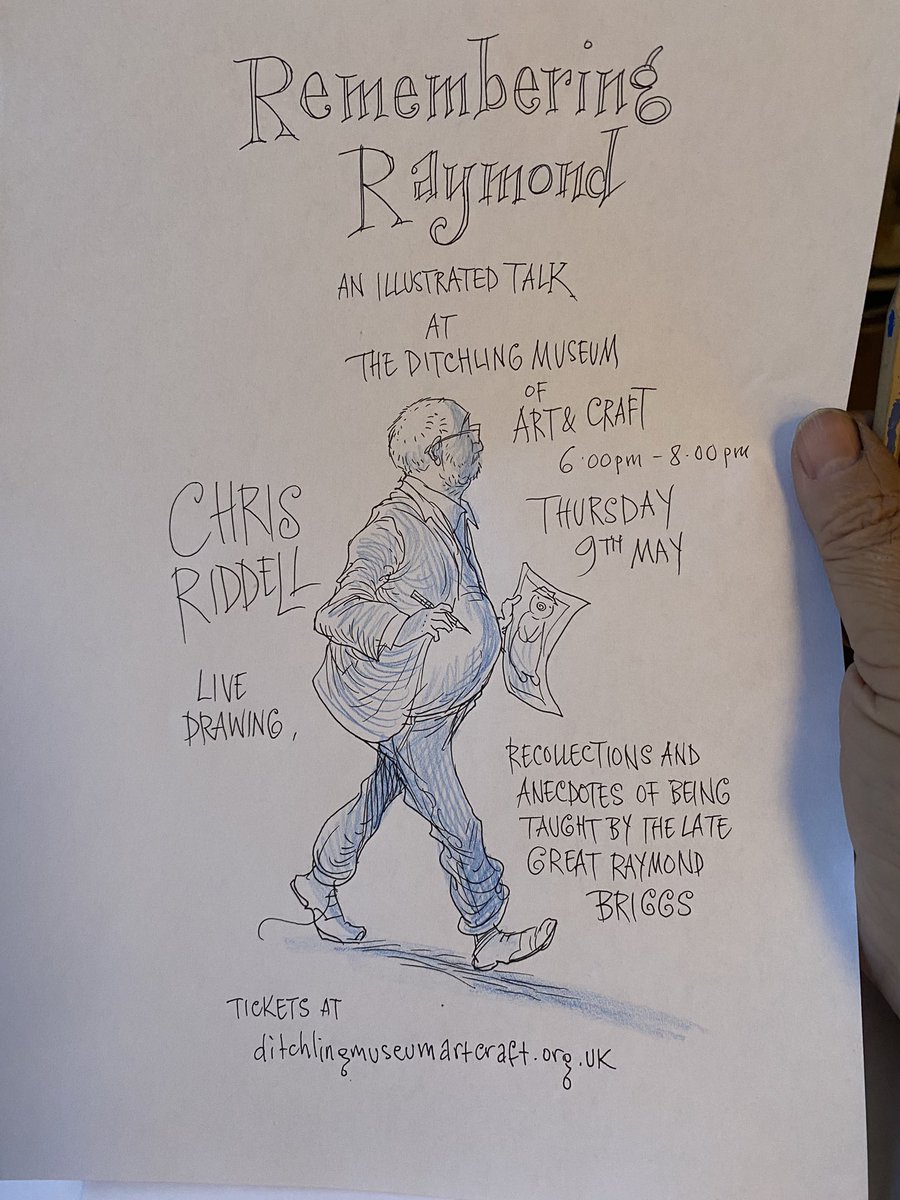 Remembering
Raymond
AN ILLUSTRATED TALK
AT
THE DITCHLING MUSEUM
OF
ART & CRAFT
6.00pm - 8.00pm
THURSDAY
9TH MAY
CHRIS
RIDDELL
LIVE
DRAWING,
RECOLLECTIONS AND
ANECDOTES OF BEING
TAUGHT BY THE LATE
GREAT RAYMOND
BRIGGS
TICKETS AT
ditchlingmuseumartcraft.org.uk